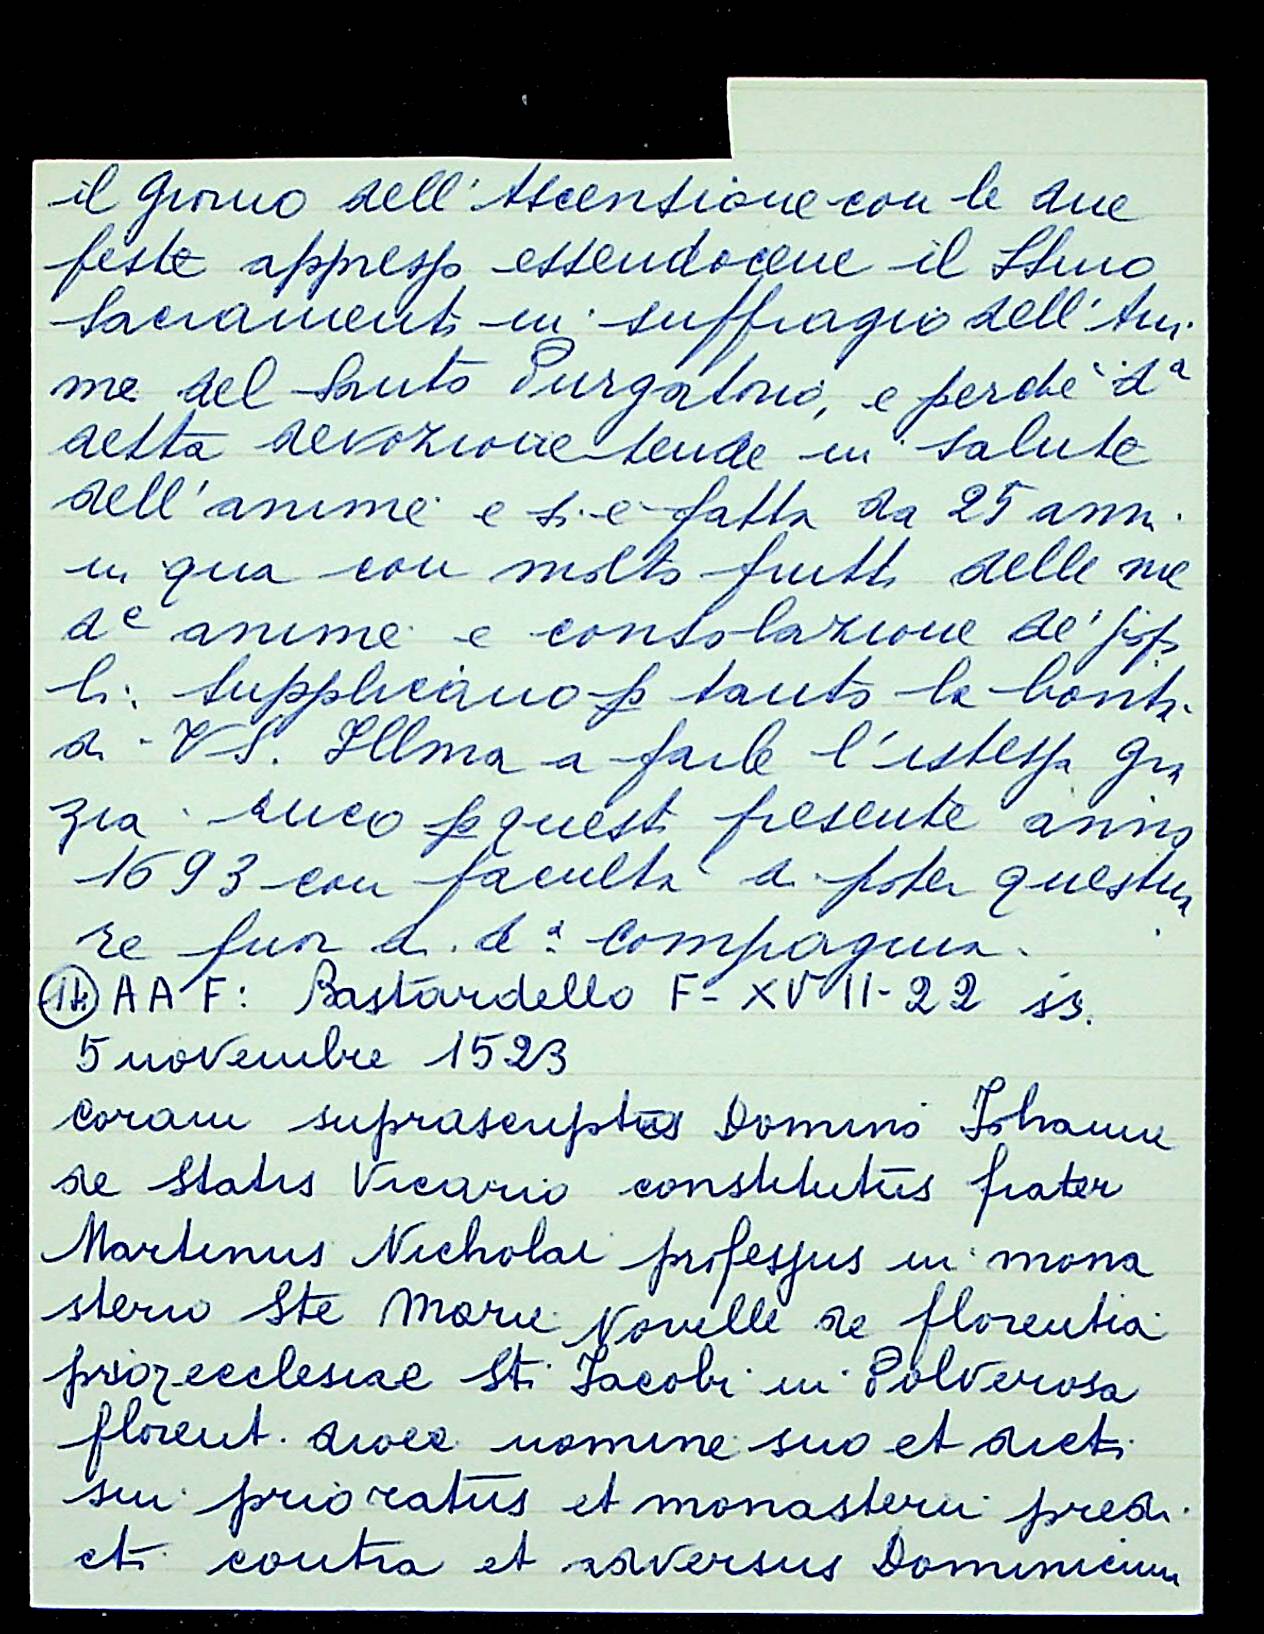 il giorno dell'Ascensione con le due
feste appresso essendocene il SSmo
Sacramento in suffragio dell'Ani-
me del Santo Purgatorio, e perché dª
detta devozione tende in salute
dell'anime e si è fatta da 25 anni
in qua con molto frutto delle me
dᵉ anime e consolazione de' popo
li: supplicano p tanto la bontà
di VS. Illma a farle l'istessa gra
zia anco p questo presente anno
1693 con facultà di poter questua
re fuor di dª Compagnia.
AAF: Bastardello F-XVII-22 is.
5 novembre 1523
coram suprascriptus Domino Iohanne
de Statis Vicario constitutus frater
Martinus Nicholai professus in mona
sterio Ste Marie Novelle de florentia
prior ecclesiae Sti Jacobi in Polverosa
florent. dioce nomine suo et dicti
sui prioratus et monasterii predi-
cti contra et adversus Dominicum